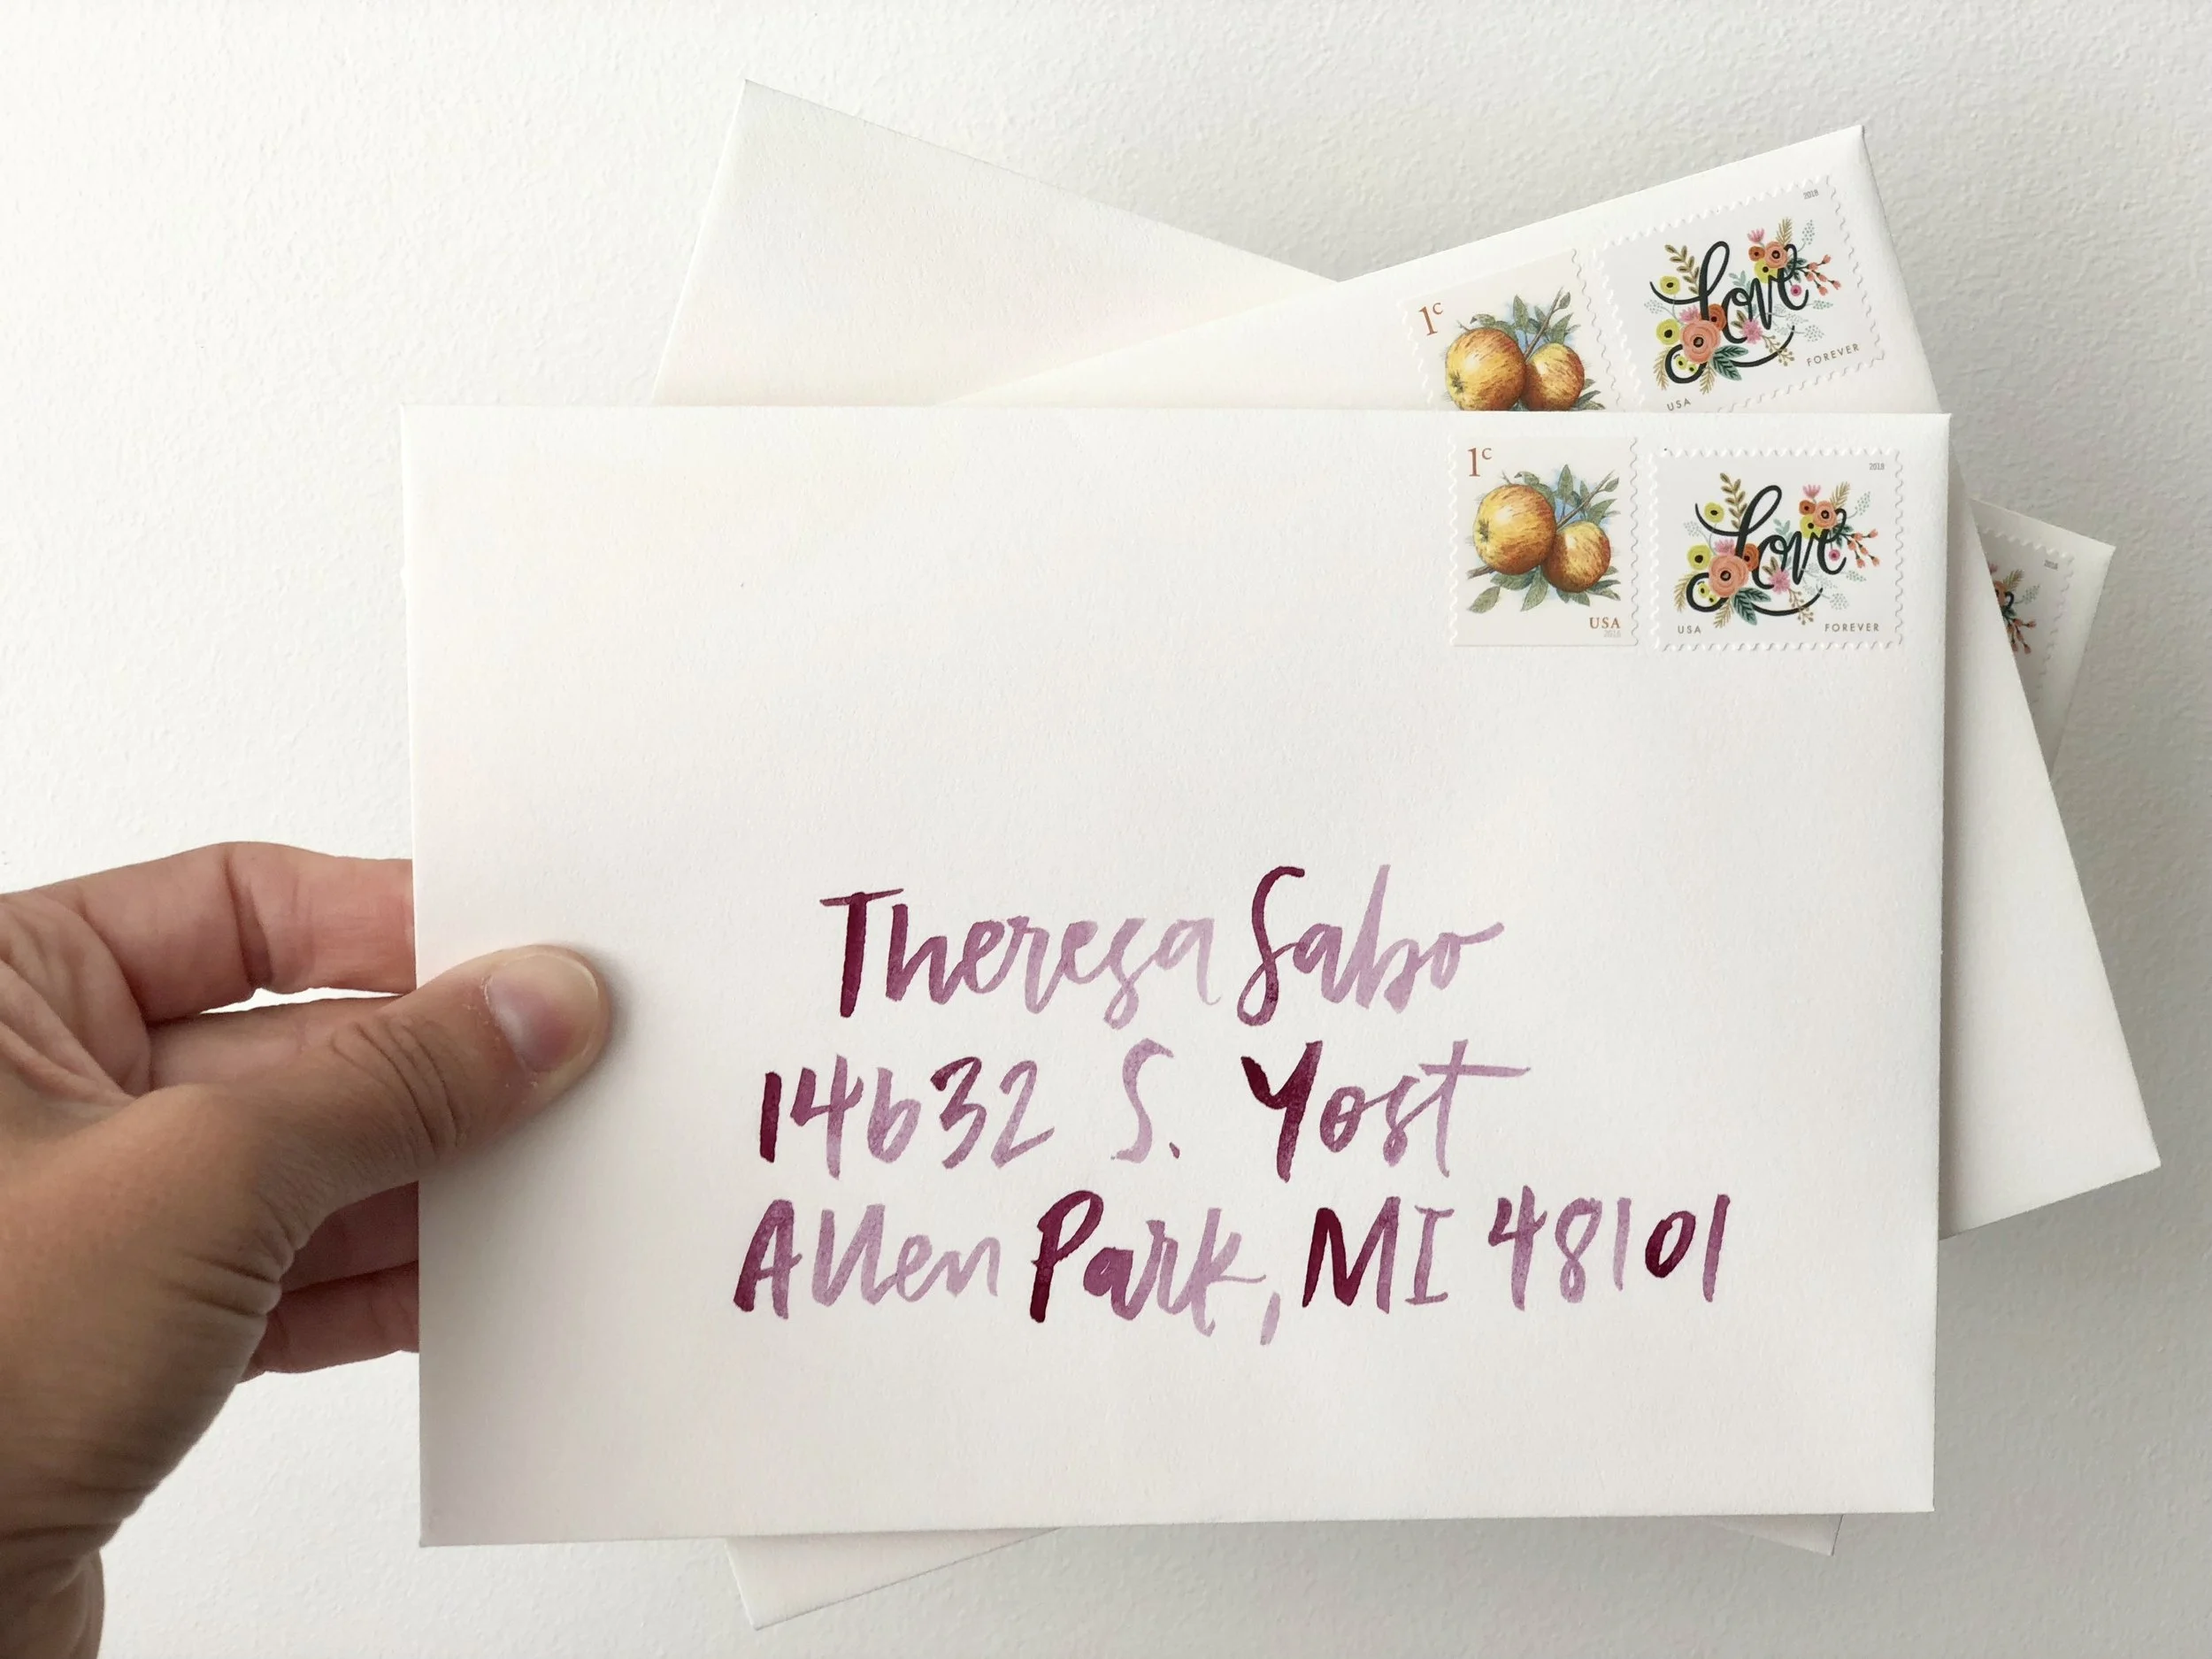 1c
2018
love
USA FOREVER
1c
2018
love
USA FOREVER
USA
2016
2018
Theresa Sabo
14632 S. Yost
Allen Park, MI 48101